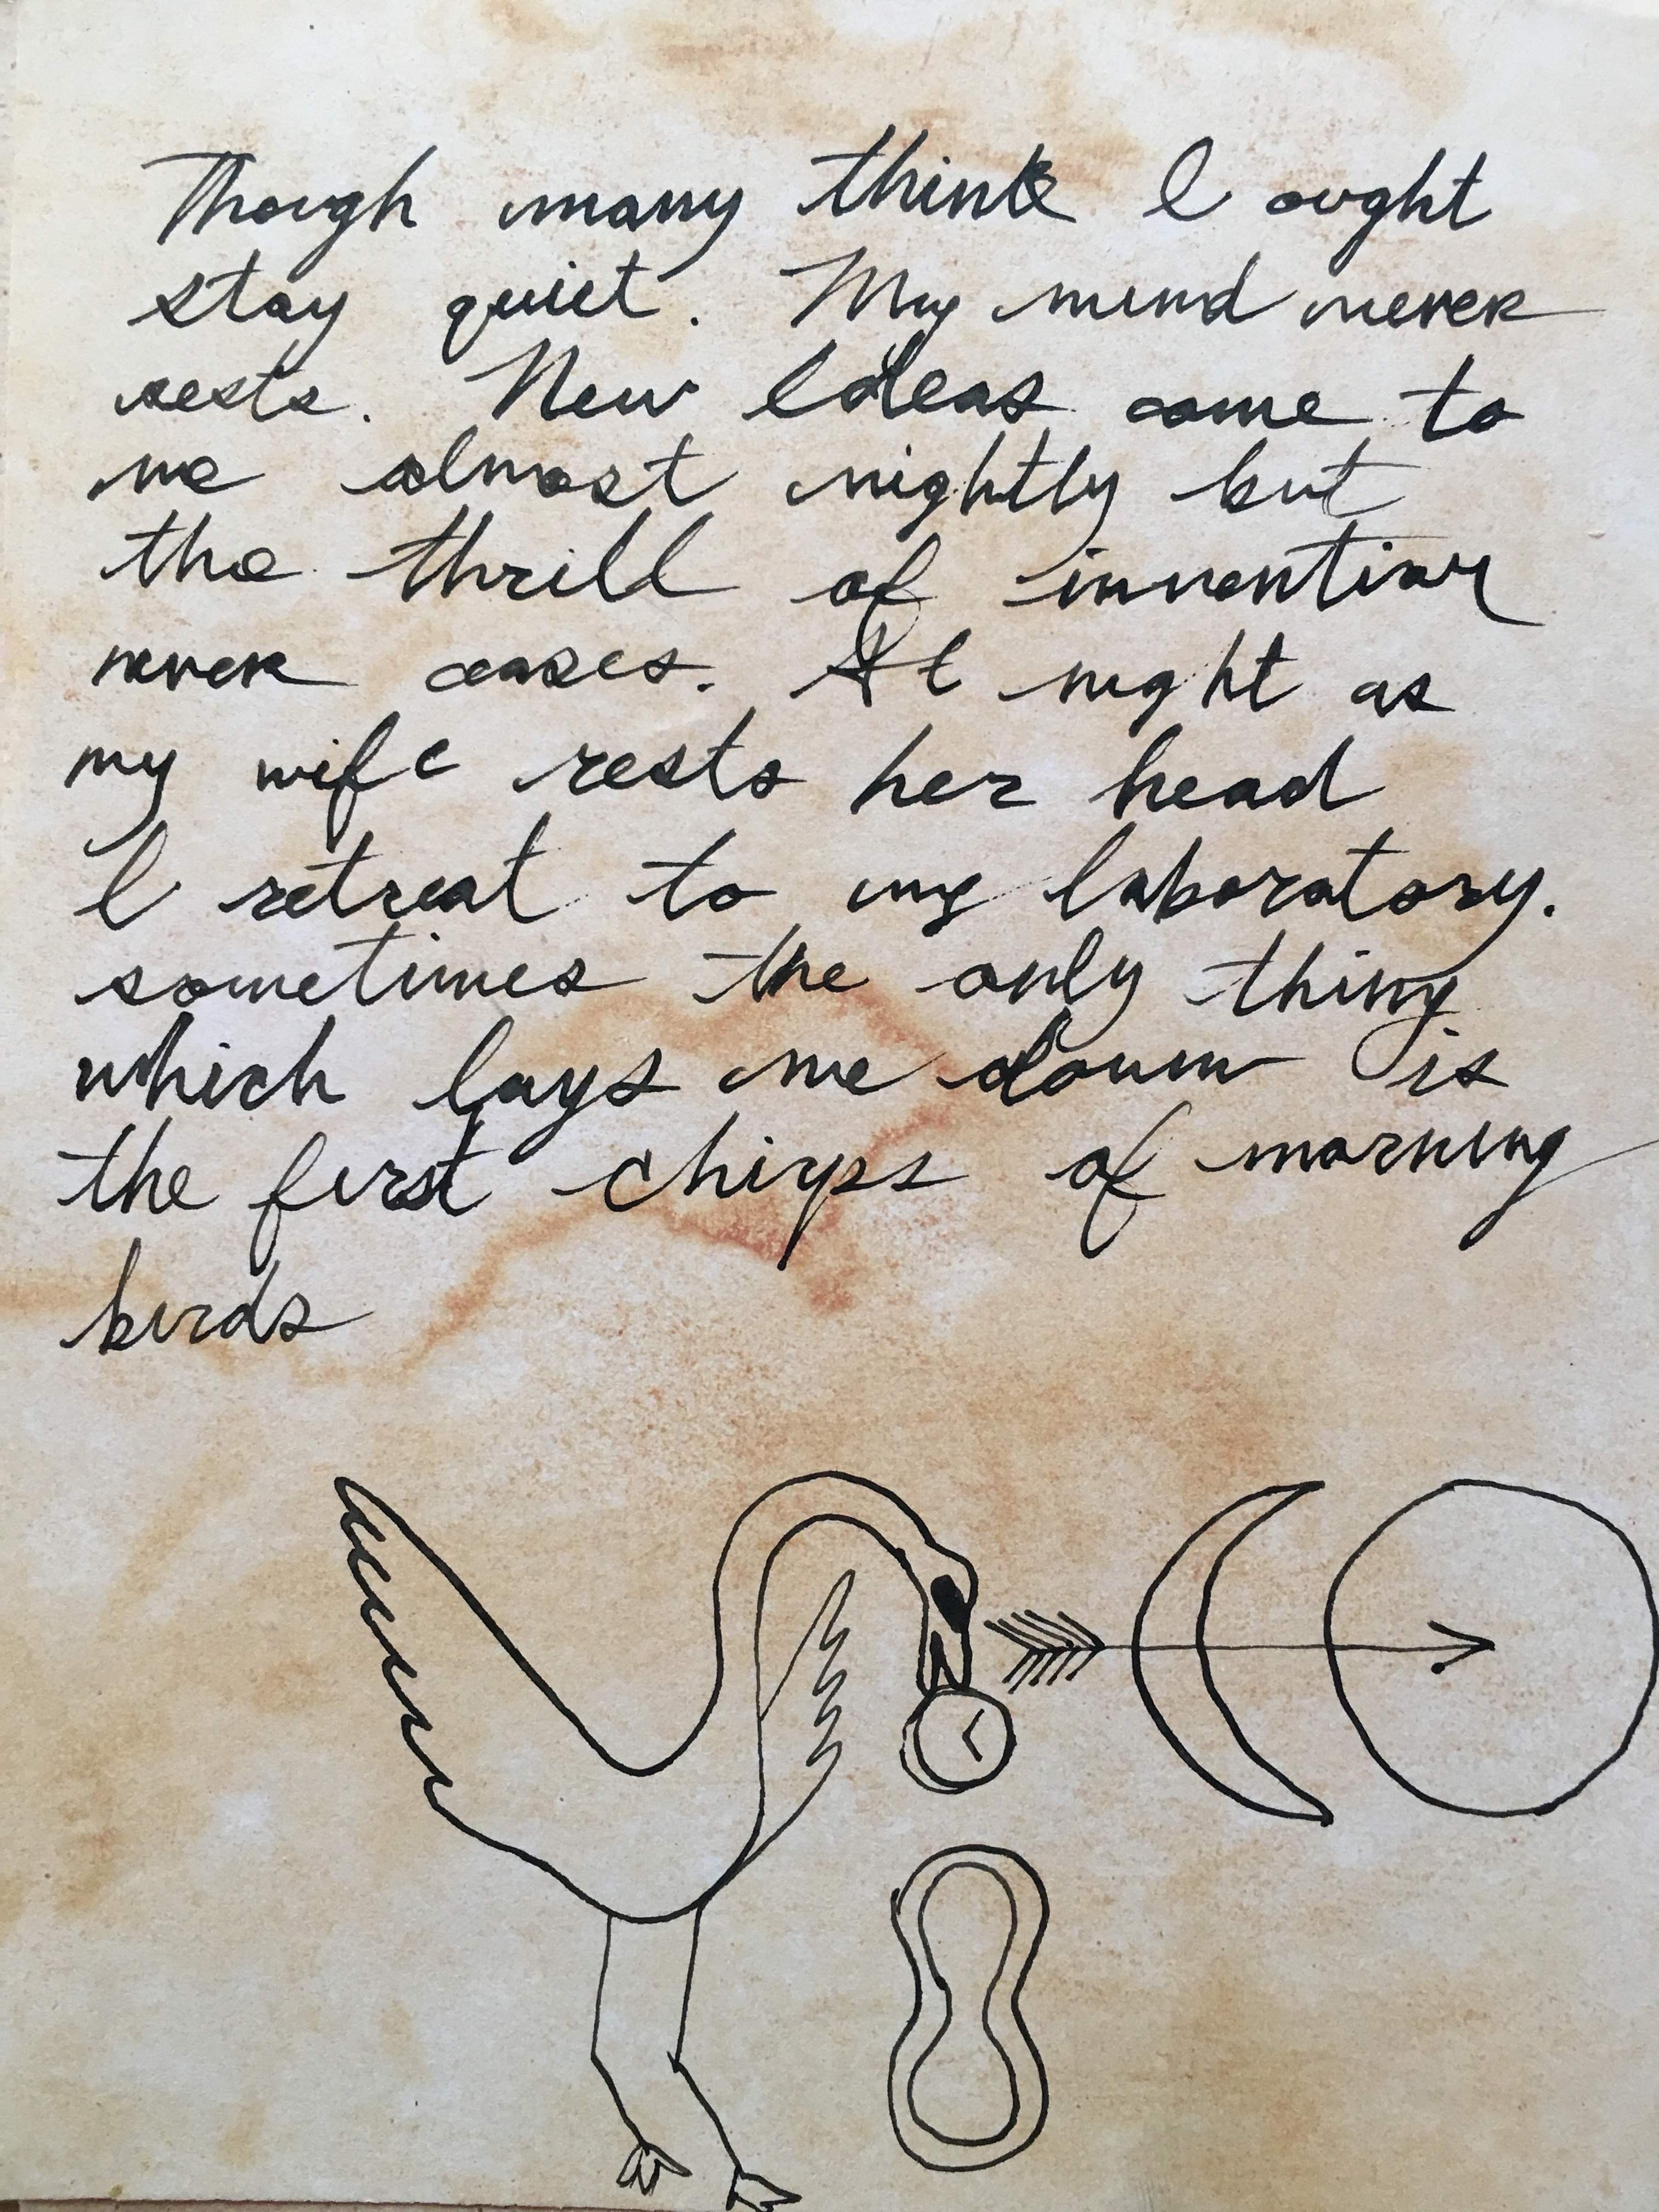 Though many think I ought
stay quiet. My mind never
rests. New Ideas come to
me almost nightly but
the thrill of invention
never ceases. At night as
my wife rests her head
I retreat to my laboratory.
sometimes the only thing
which lays me down is
the first chirps of morning
birds